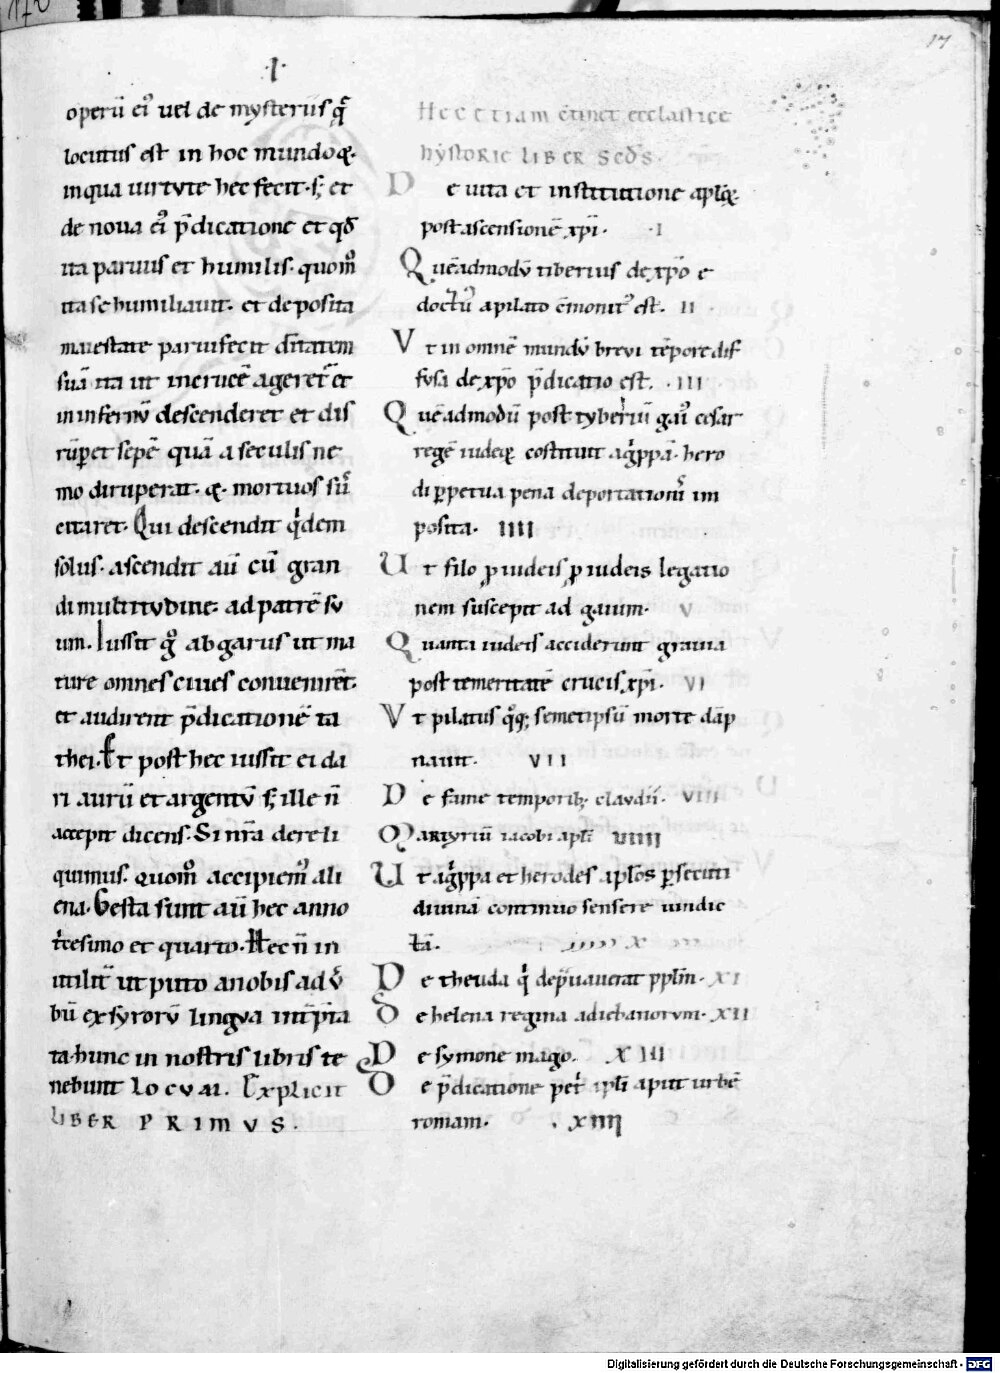 17
·I·
operū ei᾽ uel de mysteriis q̄
locutus est in hoc mundo ę.
in qua uirtute hec fecit. s; et
de noua ei᾽ p̄dicatione et qđ
ita paruus et humilis. quom̊
ita se humiliauit. et deposita
maiestate paruifecit diūitatem
suā ita ut in crucē ageret᾽ et
in infernū descenderet et dis
rūperet sepē quā a seculis ne
mo diruperat. &. mortuos sūs
citaret. Qui descendit q¹dem
solus. ascendit aū cū gran
di multitudine: ad patrē su
um. Iussit g̊ abgarus ut ma
ture omnes ciues conuenirēt.
et audirent p̄dicationē ta
thei. Et post hec iussit ei da
ri aurū et argentū s; ille n̄
accepit dicens. Si nr̄a dereli
quimus. quom̊ accipiem᾽ ali
ena. Gesta sunt aū hec anno
t¹cesimo et quarto. Hec n̄ in
utilit̄ ut puto a nobis ad ū
bū ex syrorū lingua int̄p̄ta
ta. hunc in nostris libris te
nebunt locum. Explicit
LIBER PRIMVS.
Hec etiam ctinet ecclastice
hystorie LIBER SCDS.
De uita et institutione aplōꝝ
post ascensionē xp̄i. ·I
Quēadmodū tiberius de xp̄o e
doctū a pilato cmonit᾽ est. II
Vt in omnē mundū breui tēpore dif
fusa de xp̄o p̄dicatio est. ·III
Quēadmodū post tyberiū gai᾽ cesar
regē iudeę costituit ag¹ppā. hero
di ꝑpetua pena deportationis im
posita. IIII
Ut filo ꝓ iudeis ꝓ iudeis legatio
nem suscepit ad gaium. V
Quanta iudeis acciderunt grauia
post temeritatē crucis xp̄i. VI
Vt pilatus q̊q; semetipsū morte dāp
nauit. VII
De fame temporib; claudii. VIII
Martyriū iacobi apl̄i VIIII
Ut ag¹ppa et herodes aplōs ꝑsecuti
diuinā continuo sensere uindic
tā. X
De theuda q¹ dep̄uauerat ppl̄m. XI
De helena regina adiebanorum. XII
De symone mago. XIII
De p̄dicatione pet¹ apl̄i aput urbē
romam. XIIII
Digitalisierung gefördert durch die Deutsche Forschungsgemeinschaft - DFG